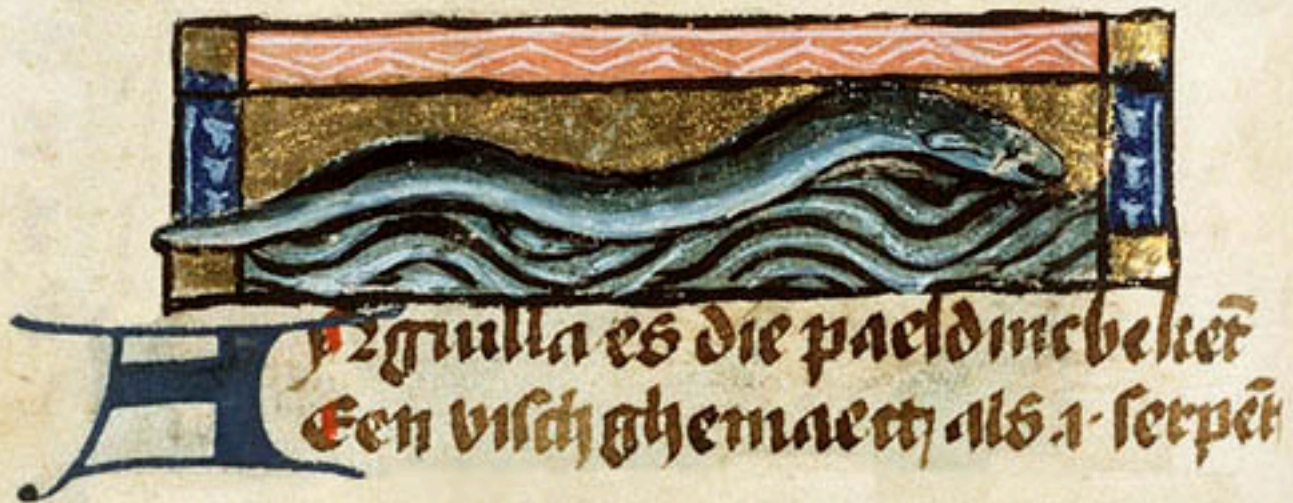 Anguilla es die paeldinc bekēt
Een visch ghemaect als .i. serpēt